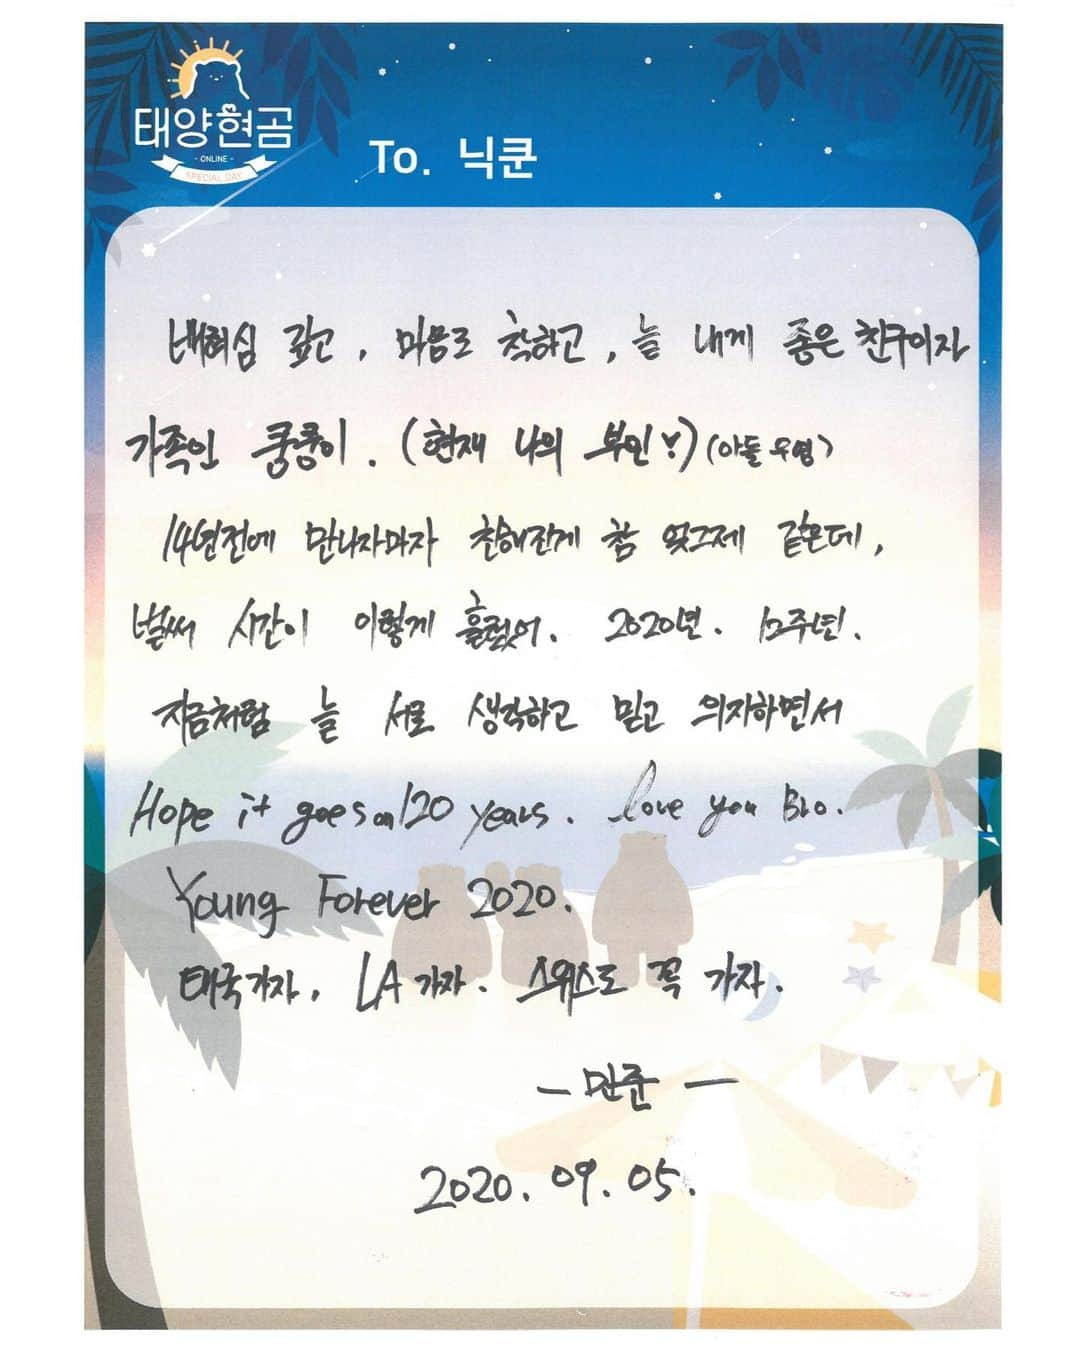 태양현곰
- ONLINE -
SPECIAL DAY
To. 닉쿤
배려심 깊고, 마음도 착하고, 늘 내게 좋은 친구이자
가족인 쿵쿵이. (현재 나의 부인) (아들 우영)
14년전에 만나자마자 친해진게 참 엊그제 같은데,
벌써 시간이 이렇게 흘렀어. 2020년. 12주년.
지금처럼 늘 서로 생각하고 믿고 의지하면서
Hope it goes on 120 years. love you Bro.
Young Forever 2020.
태국가자, LA 가자. 스위스도 꼭 가자.
- 민준 -
2020. 09. 05.